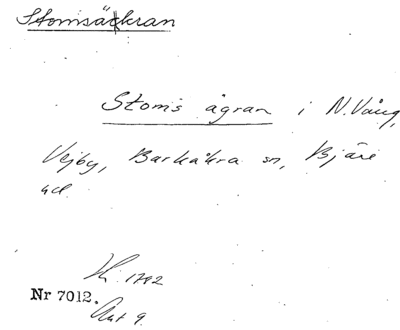 Stomsäckran
Stoms ågran i N. Vång,
Vejby, Barkåkra sn, Bjäre
hd.
1792
Nr 7012.
Akt 9.